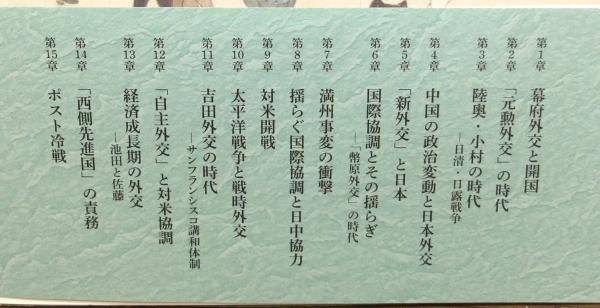 第1章 幕府外交と開国
第2章 「元勲外交」の時代
第3章 陸奥・小村の時代
―日清・日露戦争
第4章 中国の政治変動と日本外交
第5章 「新外交」と日本
第6章 国際協調とその揺らぎ
―「幣原外交」の時代
第7章 満州事変の衝撃
第8章 揺らぐ国際協調と日中協力
第9章 対米開戦
第10章 太平洋戦争と戦時外交
第11章 吉田外交の時代
―サンフランシスコ講和体制
第12章 「自主外交」と対米協調
第13章 経済成長期の外交
―池田と佐藤
第14章 「西側先進国」の責務
第15章 ポスト冷戦